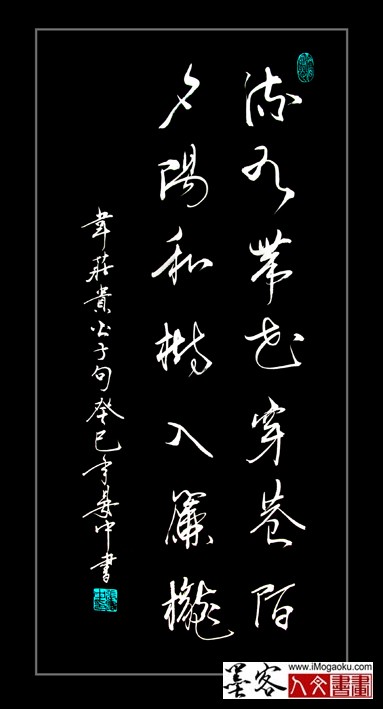 流水帶花穿巷陌
夕陽和樹入簾櫳
韋莊貴公子句癸巳中書
www.iMogaoku.com
墨客人文書畫